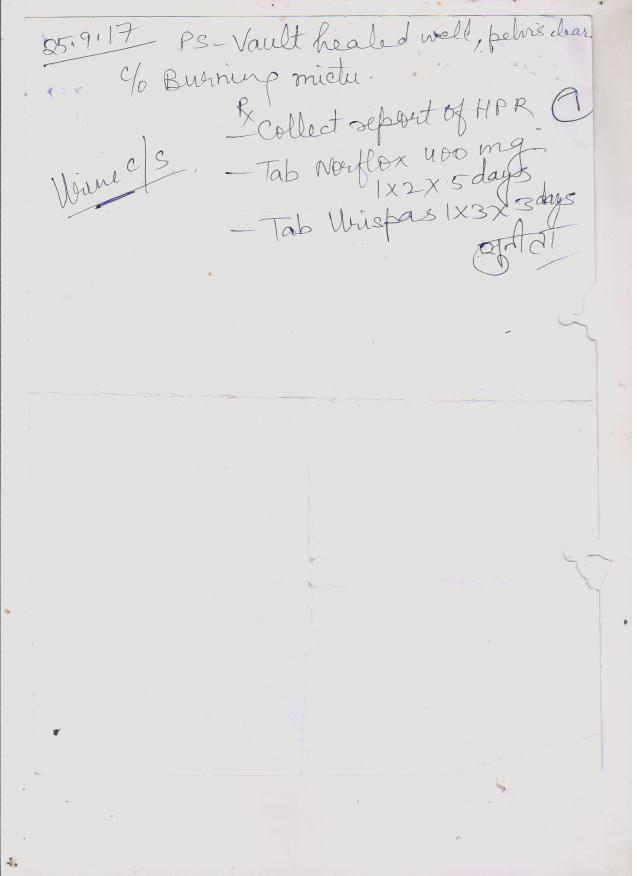 25.9.17 PS-Vault healed well, pelvis clear
c/o Burning mictu.
Rx
- Collect report of HPR 1
Urine c/s
- Tab Norflox 400 mg
1x2x5 days
- Tab Urispas 1x3x3days
सुनीता